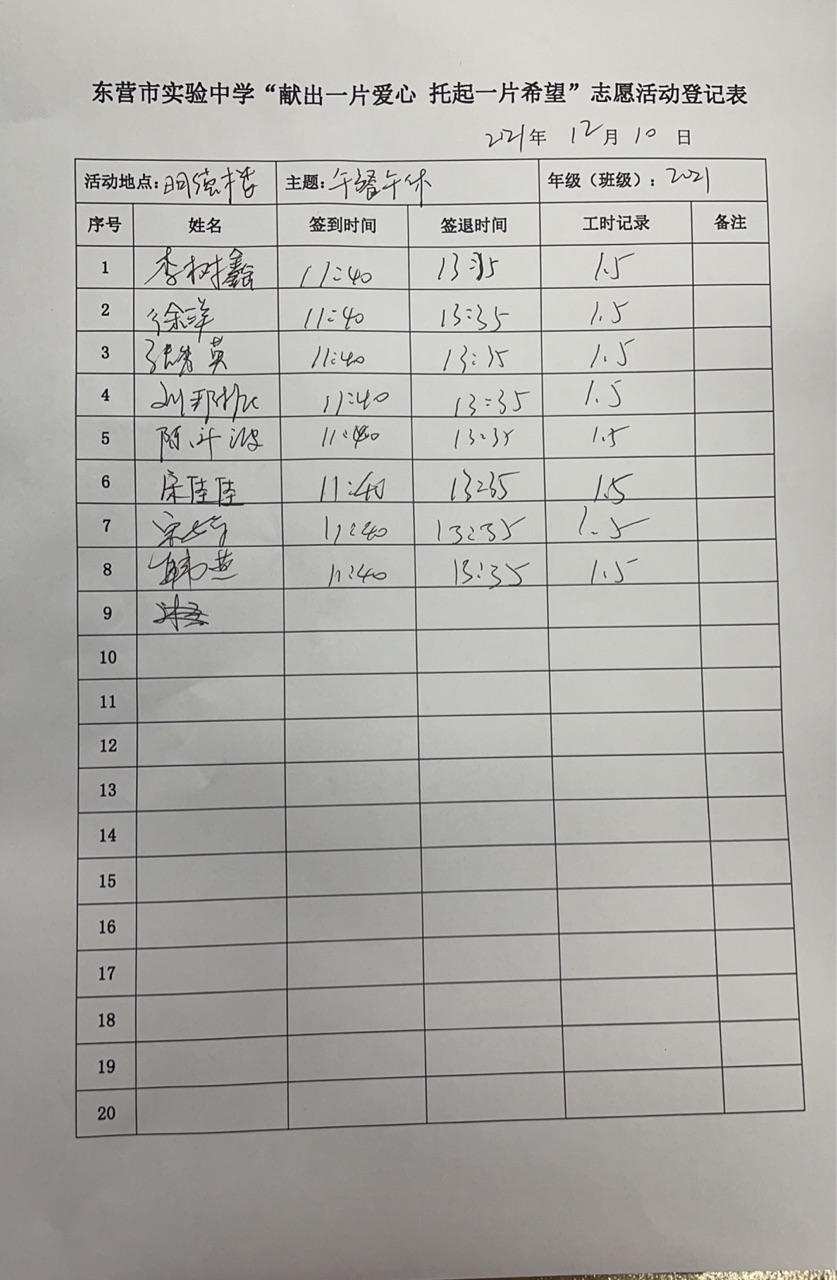 东营市实验中学“献出一片爱心 托起一片希望”志愿活动登记表
2021年 12月 10 日
活动地点：明德楼 主题：午餐午休 年级（班级）：2021
序号 姓名 签到时间 签退时间 工时记录 备注
1 李树鑫 11:40 13:35 1.5
2 徐洋 11:40 13:35 1.5
3 张秀英 11:40 13:35 1.5
4 11:40 13:35 1.5
5 11:40 13:35 1.5
6 宋佳佳 11:40 13:35 1.5
7 11:40 13:35 1.5
8 韩燕 11:40 13:35 1.5
9
10
11
12
13
14
15
16
17
18
19
20